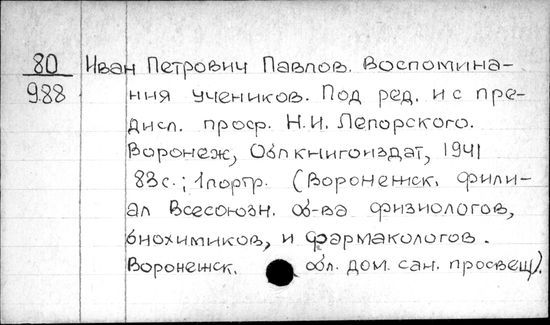 80
988
Иван Петрович Павлов. Воспомина-
ния учеников. Под ред. и с пре-
дисл. проср. Н.И. Лепорского.
Воронеж, Облкнигоиздат, 1941
83с.; 1портр. (Воронежск. фили-
ал Всесоюзн. об-ва физиологов,
биохимиков, и фармакологов.
Воронежск. обл. дом. сан. просвещ).